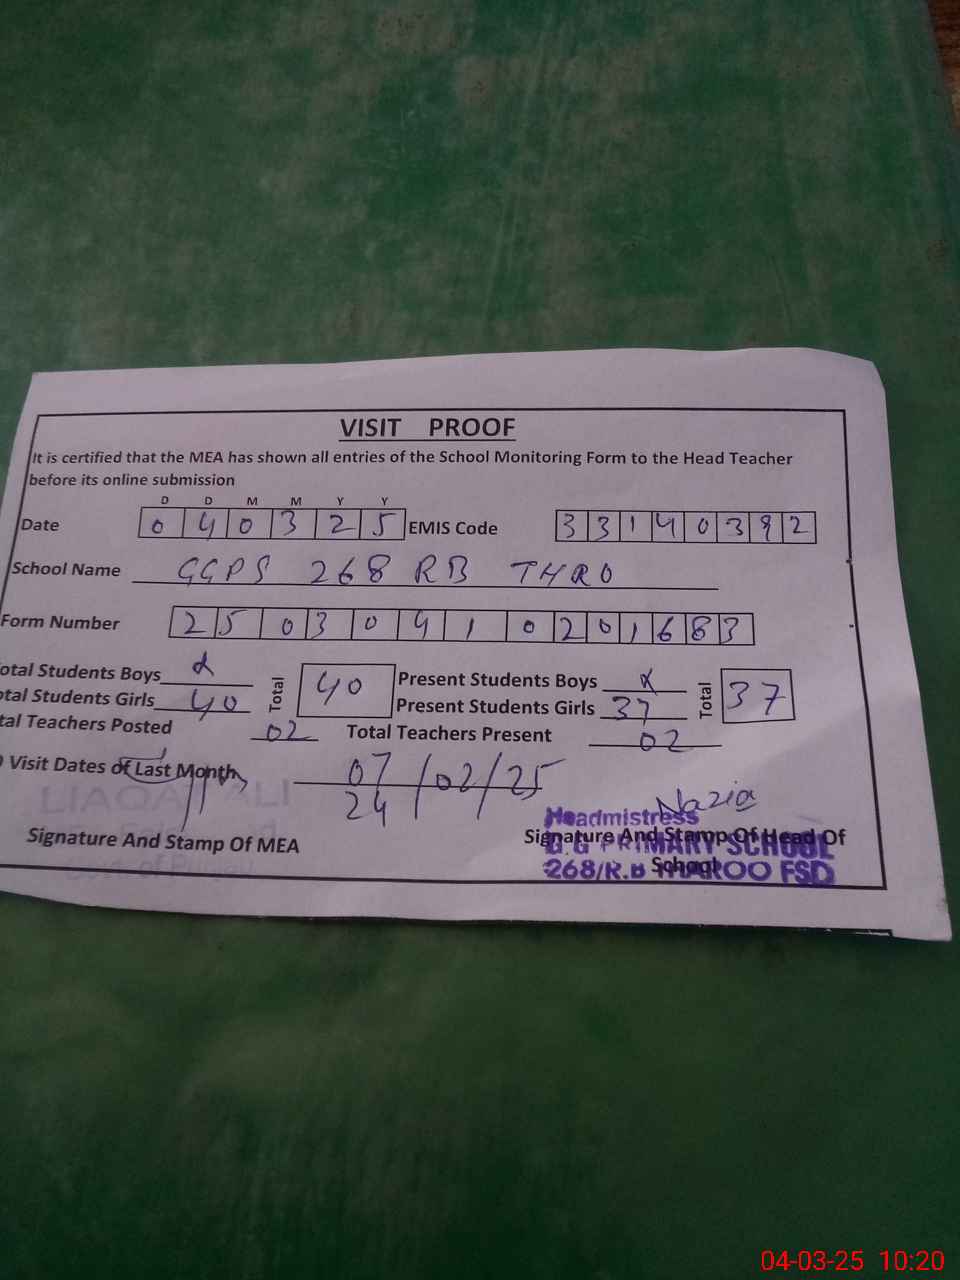 VISIT PROOF
It is certified that the MEA has shown all entries of the School Monitoring Form to the Head Teacher
before its online submission
D D M M Y Y
Date 0 4 0 3 2 5 EMIS Code 3 3 1 4 0 3 9 2
School Name GGPS 268 RB THRO
Form Number 2 5 0 3 0 4 1 0 2 0 1 6 8 3
otal Students Boys Total 40 Present Students Boys Total 37
otal Students Girls 40 Present Students Girls 37
tal Teachers Posted 02 Total Teachers Present 02
Visit Dates of Last Month 07 /02/25
24
LIAQAT ALI
Nazia
Headmistress
Signature And Stamp Of MEA Signature And Stamp Of Head Of
G.G PRIMARY SCHOOL
School
268/R.B THAROO FSD
04-03-25 10:20